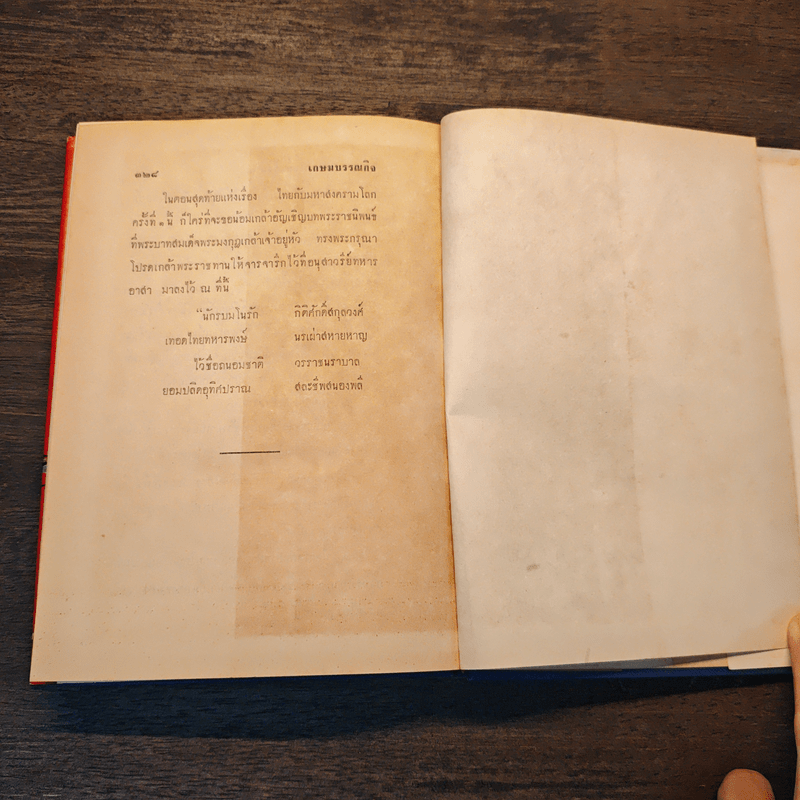 ๑๒๘ เกษมบรรณกิจ
ในตอนสุดท้ายแห่งเรื่อง ไทยกับมหาสงครามโลก
ครั้งที่ ๑ นี้ ก็ใคร่ที่จะขอน้อมเกล้าอัญเชิญบทพระราชนิพนธ์
ที่พระบาทสมเด็จพระมงกุฎเกล้าเจ้าอยู่หัว ทรงพระกรุณา
โปรดเกล้าพระราชทานให้จารจารึกไว้ที่อนุสาวรีย์ทหาร
อาสา มาลงไว้ ณ ที่นี้
"นักรบมโนรัก กิติศักดิ์สกุลวงศ์
เทอดไทยทหารพงษ์ นรเผ่าสหายหาญ
ไว้ชื่อถนอมชาติ วรราชนราบาล
ยอมปลิดอุทิศปราณ สละชีพสนองพลี